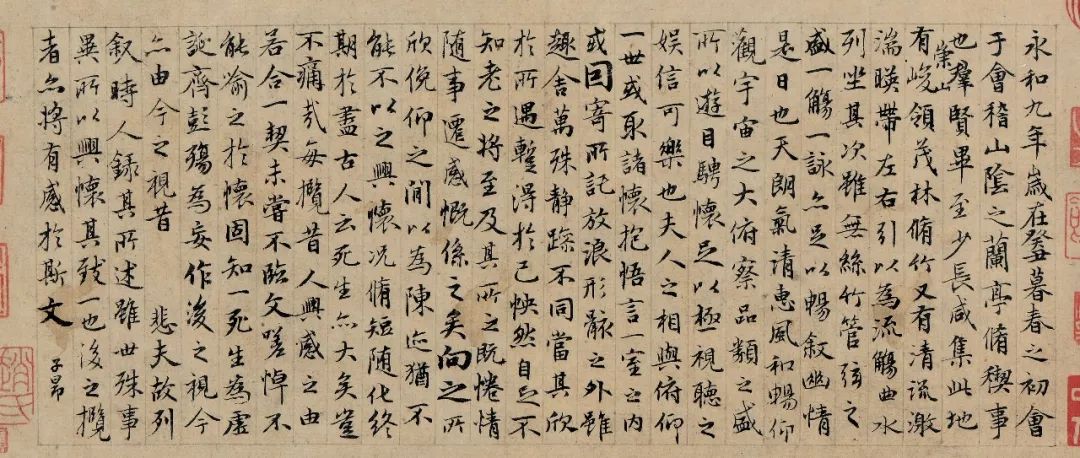 永和九年歲在癸暮春之初會
于會稽山陰之蘭亭脩稧事
也羣賢畢至少長咸集此地
崇山
有峻領茂林脩竹又有清流激
湍暎帶左右引以為流觴曲水
列坐其次雖無絲竹管弦之
盛一觴一詠亦足以暢叙幽情
是日也天朗氣清惠風和暢仰
觀宇宙之大俯察品類之盛
所以遊目騁懷足以極視聽之
娛信可樂也夫人之相與俯仰
一世或取諸懷抱悟言一室之內
或因寄所託放浪形骸之外雖
趣舍萬殊静躁不同當其欣
於所遇蹔得於己怏然自足不
知老之將至及其所之既惓情
隨事遷感慨係之矣向之所
欣俛仰之閒以為陳迹猶不
能不以之興懷況脩短隨化終
期於盡古人云死生亦大矣豈
不痛哉每攬昔人興感之由
若合一契未嘗不臨文嗟悼不
能喻之於懷固知一死生為虛
誕齊彭殤為妄作後之視今
亦由今之視昔 悲夫故列
叙時人錄其所述雖世殊事
異所以興懷其致一也後之攬
者亦將有感於斯文
子昂